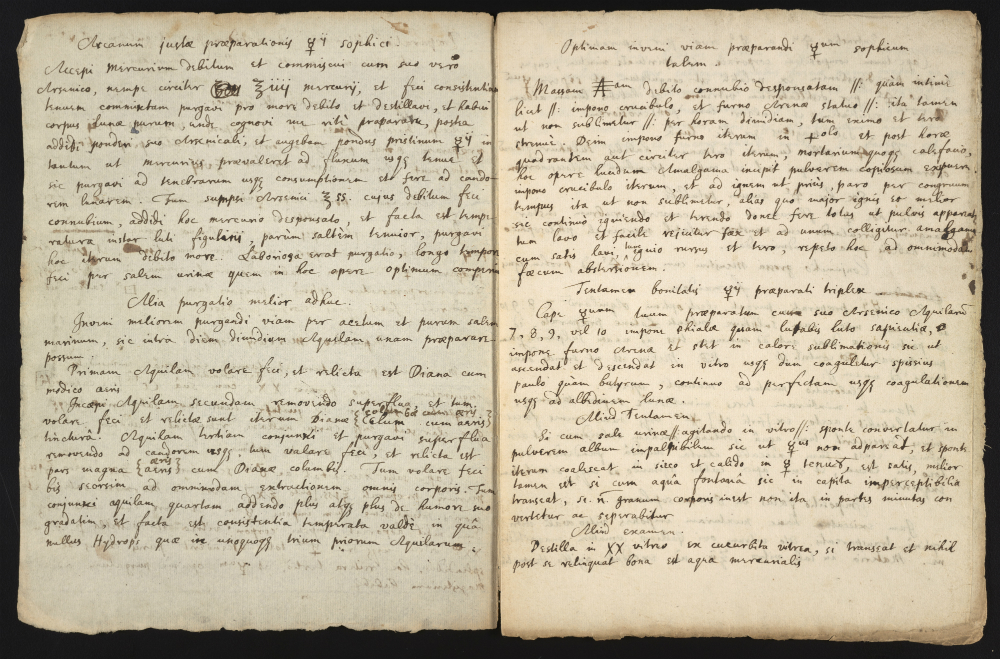 Arcanum justae praeparationis ☿ij sophici
Accepi mercurium debitum et commiscui cum suo vero
Arsenico, nempe circiter ℥iiii mercurij, et feci consistentiam
tenuem commixtam purgavi pro more debito et destillavi, et habui
corpus lunae purum, unde cognovi me rite praeparare, postea
addidi ponderi suo Arsenicali, et augebam pondus pristinum ☿ij in
tantum ut mercurius, praevaleret ad fluxum usq3 tenue et
sic purgavi ad tenebrarum usq3 consumptionem et fere ad cando-
rem lunarem. Tum sumpsi Arsenici ℥ss. cujus debitum feci
connubium, addidi hoc mercurio desponsato, et facta est tempe
ratura instar luti figulini, parùm saltèm tenuior, purgavi
hoc iterum debito more. Laboriosa erat purgatio, longo tempore
feci per salem urinae quem in hoc opere optimum comperi
Alia purgatio melior adhuc.
Inveni meliorem purgandi viam per acetum et purum salem
marinum, sic intra diem dimidium Aquilam unam praeparare
possum.
Primam Aquilam volare feci, et relicta est Diana cum
modico aeris
Incepi Aquilam secundam removendo superflua et tum
volare feci et relictae sunt iterum Dianae {columbae cum aeris}
{Celum cum aeris}
tinctura. Aquilam tertiam conjunxi et purgavi superflua
removendo ad candorem usq3 tum volare feci, et relicta est
pars magna {aeris} cum Dianae columbis. Tum volare feci
bis seorsim ad ommimodam extractionem omnis corporis. Tum
conjunxi aquilam quartam addendo plus atq3 plus de humore suo
gradatim, et facta est consistentia temperata valdè in quâ
nullus Hydrops quae in unoquoq3 trium priorum Aquilarum.
Optimam inveni viam praeparandi ☿um sophicum
talem.
Massam am debito connubio desponsatam //: quàm intimè
licet //: impono crucibulo, et furno Arenae statuo //: ita tamen
ut non sublimetur //: per horam dimidiam, tum eximo et tero
strenuè. Dein impono furno iterum in olo et post horae
quadrantem aut circiter tero iterum, mortarium quoq3 calefacio,
hoc opere lucidum Amalgama incipit pulverem copiosum expuere.
impono crucibulo iterum, et ad ignem ut priùs, paro per congruum
tempus ita ut non sublimetur, alias quo major ignis eo melior
sic continuo igniendo et terendo donec ferè totus ut pulvis appareat
tum lavo et facile rejicitur faex et ad unum colligitur amalgama
cum satis lavi, tunc ignio rursus et tero, repeto hoc ad ommimodam
faecum abstersionem.
Tentamen bonitatis ☿ij praeparati triplex
Cape ☿um tuum praeparatum cum suo Arsenico Aquilarum
7, 8, 9, vel 10 impone phialae quam lutabis luto sapientiae,
impone furno Arenae et stet in calore sublimationis sic ut
ascendat et descendat in vitro usq3 dum coaguletur spissius
paulo quam butyrum, continuo ad perfectam usq3 coagulationem
usq3 ad albedinem lunae.
Aliud Tentamen
Si cum sale urinae //: agitando in vitro //: sponte convertatur in
pulverem album impalpabilem sic ut ☿us non adpareat, et sponte
iterum coalescat in sicco et calido in ☿ tenuem, est satis, melior
tamen est si cum aquâ fontanâ sic in capita imperceptibilia
transeat, se. ñ. granum corporis inest non ita in partes minutas con
vertetur ac seperabitur
Aliud examen.
Destilla in XX vitreo ex cucurbita vitrea, si transeat et nihil
post se relinquat bona est aqua mercurialis